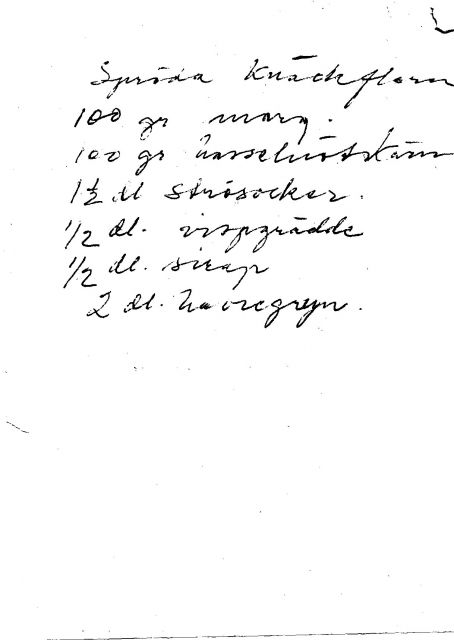 Spröda Knäckflarn
100 gr marg.
100 gr hasselnötskärn
1½ dl strösocker.
1/2 dl. vispgrädde
1/2 dl. sirap
2 dl. havregryn.